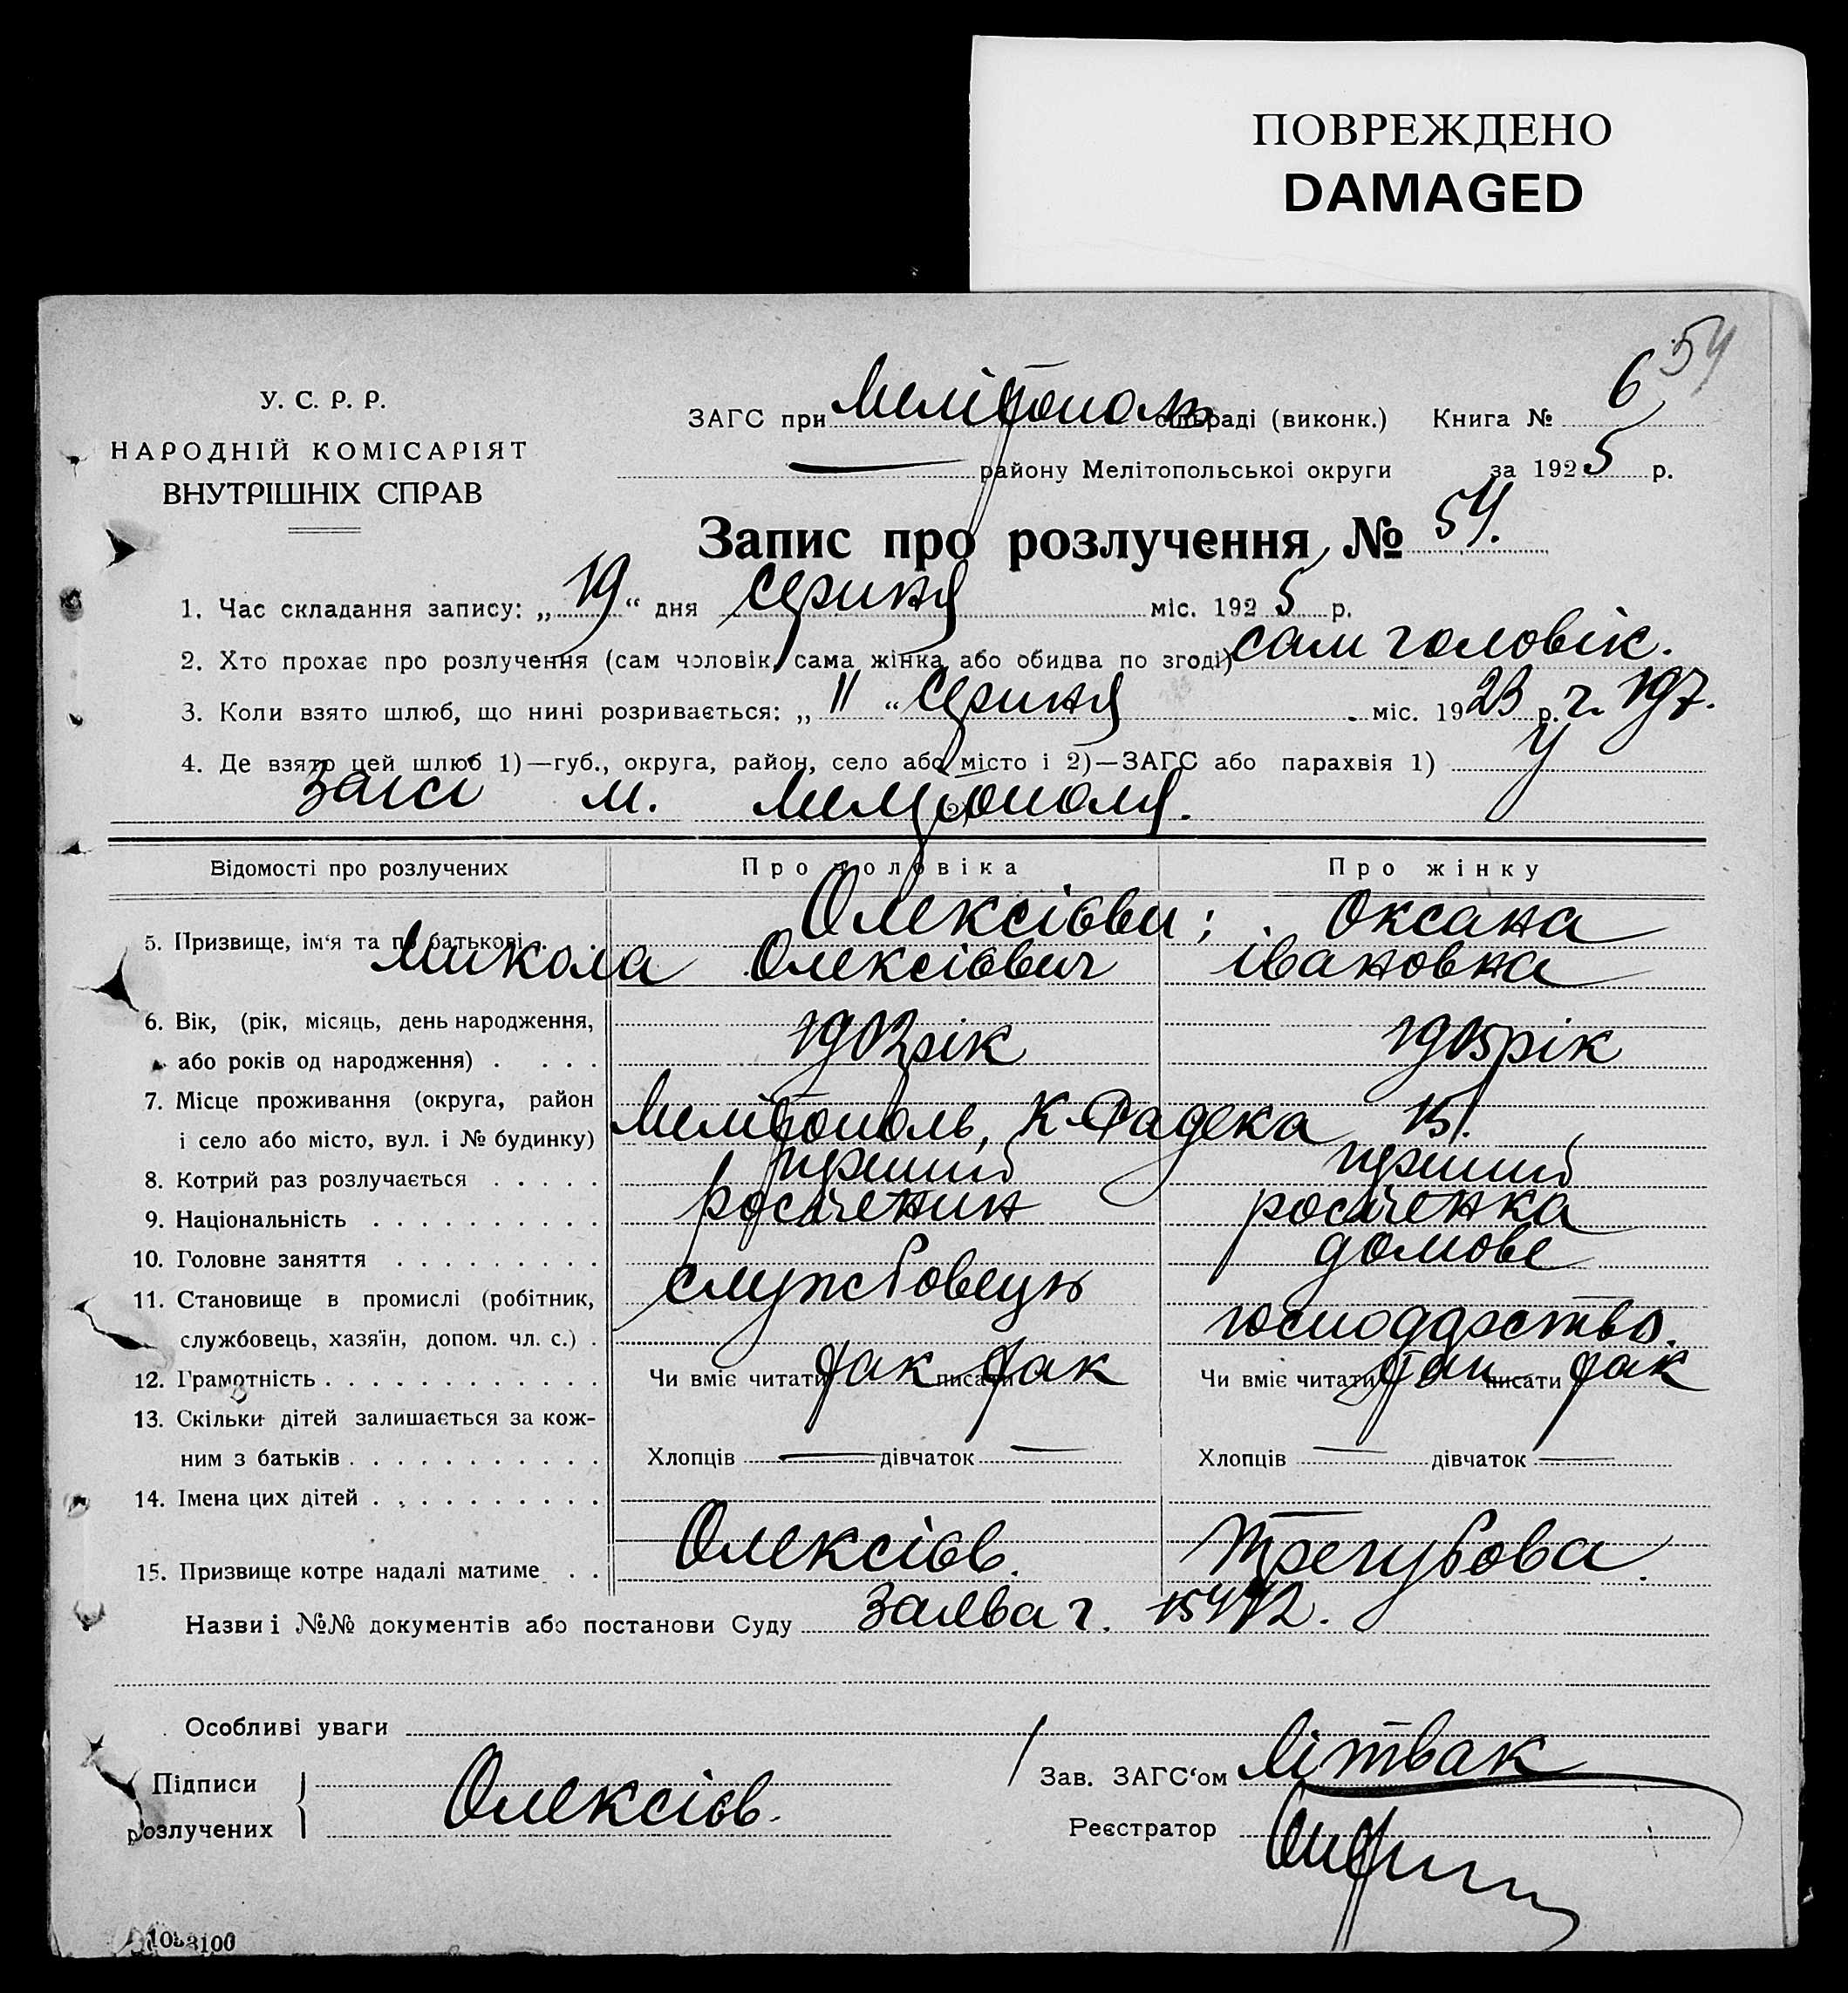 ПОВРЕЖДЕНО
DAMAGED
54
У. С. Р. Р.
НАРОДНІЙ КОМІСАРІЯТ
ВНУТРІШНІХ СПРАВ
ЗАГС при Мелітополь раді (виконк.) Книга № 6
— району Мелітопольської округи за 1925 р.
Запис про розлучення № 54.
1. Час складання запису: „19“ дня серпня міс. 1925 р.
2. Хто прохає про розлучення (сам чоловік, сама жінка або обидва по згоді) сам чоловік.
3. Коли взято шлюб, що нині розривається: „11“ серпня міс. 1923 р. ч. 197.
4. Де взято цей шлюб 1)—губ., округа, район, село або місто і 2)—ЗАГС або парахвія 1) у
Загсі м. Мелітополя.
Відомості про розлучених Про чоловіка Про жінку
5. Призвище, ім‘я та по батькові Олексієви; Оксана
Микола Олексієвич івановна
6. Вік, (рік, місяць, день народження, 1902 рік 1905 рік
або років од народження)
7. Місце проживання (округа, район Мелітополь, К-Радека 15.
і село або місто, вул. і № будинку)
8. Котрий раз розлучається перший перший
9. Національність росіченин росіченка
10. Головне заняття домове
11. Становище в промислі (робітник, службовець господарство.
службовець, хазяїн, допом. чл. с.)
12. Грамотність Чи вміє читати так писати так Чи вміє читати так писати так
13. Скільки дітей залишається за кож-
ним з батьків Хлопців — дівчаток — Хлопців — дівчаток —
14. Імена цих дітей
15. Призвище котре надалі матиме Олексієв. Трегубова.
Назви і №№ документів або постанови Суду Заява ч.
Особливі уваги
Підписи розлучених Олексієв.
/ Зав. ЗАГС‘ом Літвак
Реєстратор